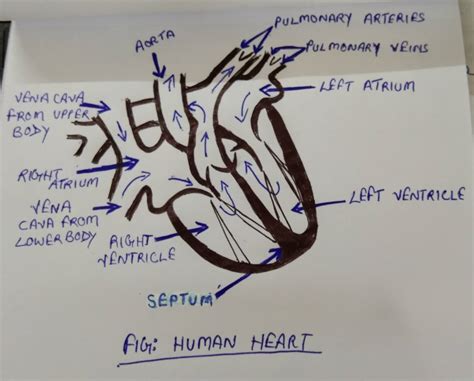 PULMONARY ARTERIES
AORTA
PULMONARY VEINS
LEFT ATRIUM
VENA CAVA
FROM UPPER
BODY
RIGHT
ATRIUM
VENA
CAVA FROM
LOWER BODY
RIGHT
VENTRICLE
LEFT VENTRICLE
SEPTUM
FIG: HUMAN HEART